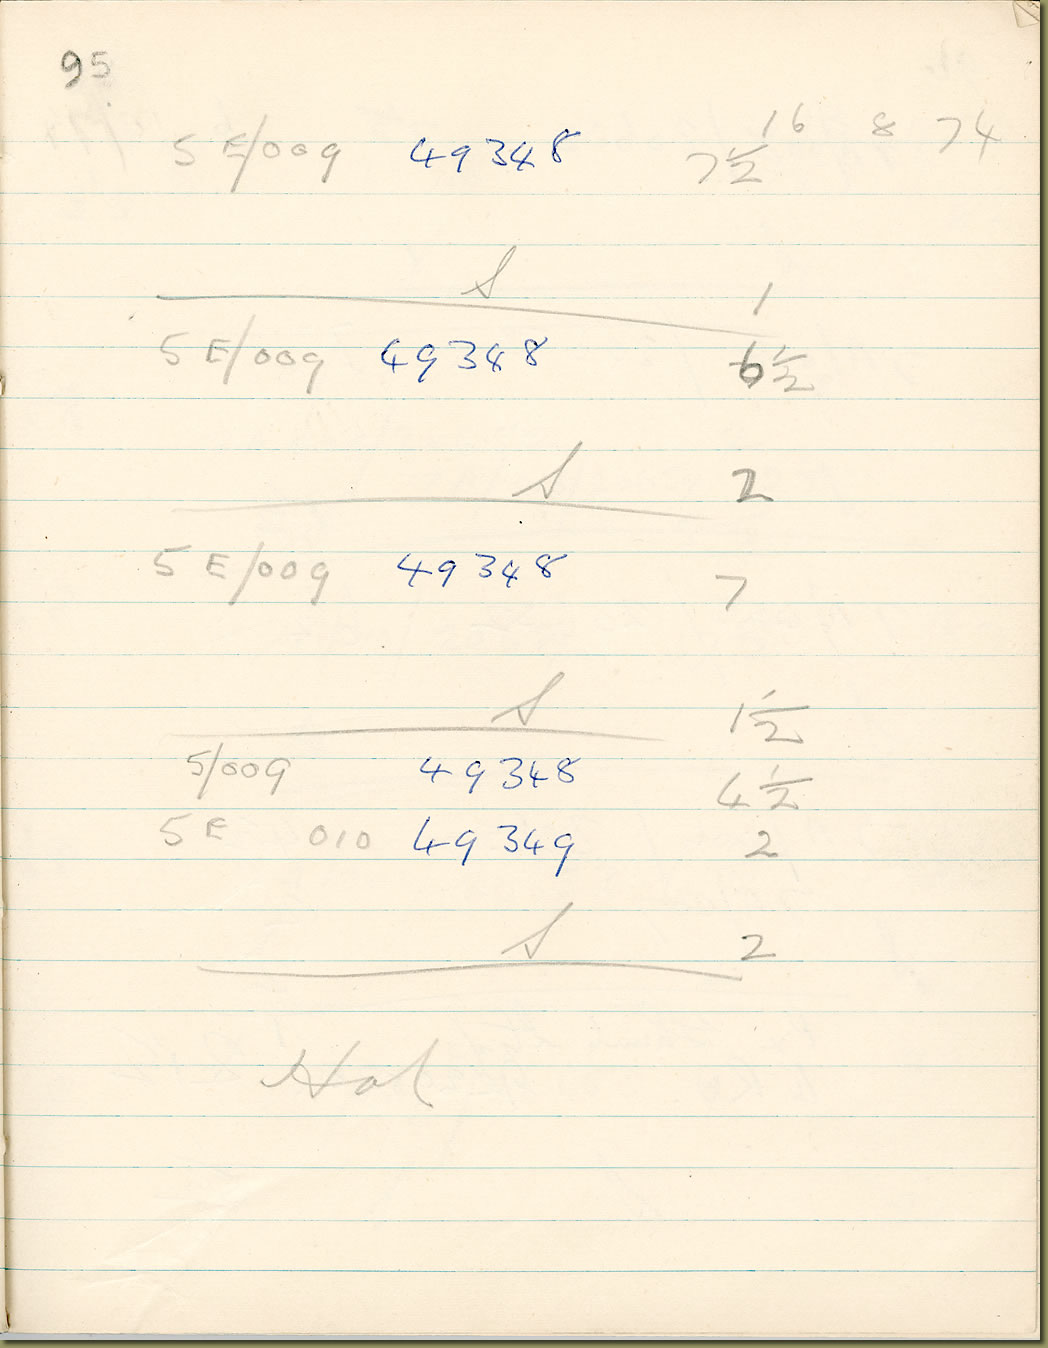 95
5E/009 49348 7½ 16 8 74
S 1
5E/009 49348 6½
S 2
5E/009 49348 7
S 1½
5/009 49348 4½
5E 010 49349 2
S 2
Hol